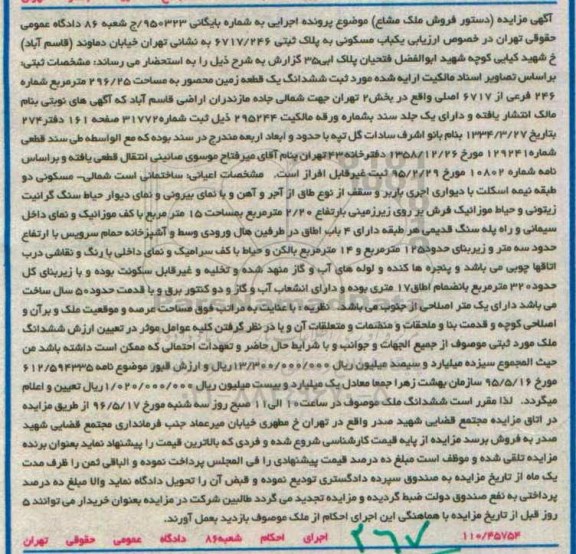 آگهی مزایده (دستور فروش ملک مشاع) موضوع پرونده اجرایی به شماره بایگانی ۹۵۰۳۲۳/ج شعبه ۸۶ دادگاه عمومی
حقوقی تهران در خصوص ارزیابی یکباب مسکونی به پلاک ثبتی ۶۷۱۷/۲۴۶ به نشانی تهران خیابان دماوند (قاسم آباد)
خ شهید کیایی کوچه شهید ابوالفضل فتحیان پلاک ابی۳۵ گزارش به شرح ذیل را به استحضار می رساند: مشخصات ثبتی:
براساس تصاویر اسناد مالکیت ارایه شده مورد ثبت ششدانگ یک قطعه زمین محصور به مساحت ۲۹۶/۲۵ مترمربع شماره
۲۴۶ فرعی از ۶۷۱۷ اصلی واقع در بخش۲ تهران جهت شمالی جاده مازندران اراضی قاسم آباد که آگهی های نوبتی بنام
مالک انتشار یافته و دارای یک جلد سند بشماره ورقه مالکیت ۲۹۵۲۴۴ ذیل ثبت شماره۳۱۷۷۲ صفحه ۱۶۱ دفتر۲۷۴
بتاریخ ۱۳۳۴/۳/۲۷ بنام بانو اشرف سادات گل تپه با حدود و ابعاد اربعه مندرج در سند بوده که مع الواسطه طی سند قطعی
شماره۱۲۹۲۴۱ مورخ ۱۳۵۸/۱۲/۲۶ دفترخانه۴۳تهران بنام آقای میرفتاح موسوی صائینی انتقال قطعی یافته و براساس
نامه شماره ۱۰۸۰۲ مورخ ۹۵/۲/۲۹ ثبت غیرقابل افراز است. مشخصات اعیانی: ساختمانی است شمالی- مسکونی دو
طبقه نیمه اسکلت با دیواری اجری باربر و سقف از نوع طاق از آجر و آهن و با نمای بیرونی و نمای دیوار حیاط سنگ گرانیت
زیتونی و حیاط موزائیک فرش بر روی زیرزمینی بارتفاع ۲/۲۰ مترمربع بمساحت ۱۵ متر مربع با کف موزائیک و نمای داخل
سیمانی و راه پله سنگ قدیمی هر طبقه دارای ۴ باب اطاق در طرفین هال ورودی وسط و آشپزخانه حمام سرویس با ارتفاع
حدود سه متر و زیربنای حدود۱۲۵ مترمربع و ۱۴ مترمربع بالکن و حیاط با کف سرامیک و نمای داخلی با رنگ و نقاشی درب
اتاقها چوبی می باشد و پنجره ها کنده و لوله های آب و گاز منهد شده و تخلیه و غیرقابل سکونت بوده و با زیربنای کل
حدود۳۲۰ مترمربع بانضمام اطاق۱۷ متری بوده و دارای انشعاب آب و گاز و دو کنتور برق و با قدمت حدود۵۰ سال ساخت
می باشد دارای یک متر اصلاحی از جنوب می باشد. نظریه: با عنایت به مراتب فوق مساحت عرصه و موقعیت ملک و برآن و
اصلاحی کوچه و قدمت بنا و ملحقات و منظمات و متعلقات آن و با در نظر گرفتن کلیه عوامل موثر در تعیین ارزش ششدانگ
ملک مورد ثبتی موصوف از جمیع الجهات و جوانب و با شرایط حال حاضر و تعهدات احتمالی که ممکن است داشته باشد من
حیث المجموع سیزده میلیارد و سیصد میلیون ریال ۱۳/۳۰۰/۰۰۰/۰۰۰ریال و ارزش قبور موضوع نامه ۶۱۲/۵۹۴۳۳۵
مورخ ۹۵/۵/۱۶ سازمان بهشت زهرا جمعا معادل یک میلیارد و بیست میلیون ریال ۱/۰۲۰/۰۰۰/۰۰۰ریال تعیین و اعلام
میگردد. لذا مقرر است ششدانگ ملک موصوف در ساعت۱۰ الی۱۱ صبح روز سه شنبه مورخ ۹۶/۵/۱۷ از طریق مزایده
در اتاق مزایده مجتمع قضایی شهید صدر واقع در تهران خ مطهری خیابان میرعماد جنب فرمانداری مجتمع قضایی شهید
صدر به فروش برسد مزایده از پایه قیمت کارشناسی شروع شده و فردی که بالاترین قیمت را پیشنهاد نماید بعنوان برنده
مزایده تلقی شده و موظف است مبلغ ده درصد قیمت پیشنهادی را فی المجلس پرداخت نموده و الباقی ثمن را ظرف مدت
یک ماه از تاریخ مزایده به صندوق سپرده دادگستری تودیع نموده و قبض آن را تحویل دادگاه نماید والا مبلغ ده درصد
پرداختی به نفع صندوق دولت ضبط گردیده و مزایده تجدید می گردد طالبین شرکت در مزایده بعنوان خریدار می توانند ۵
روز قبل از تاریخ مزایده با هماهنگی این اجرای احکام از ملک موصوف بازدید بعمل آورند.
۱۱۰/۴۵۷۵۴ اجرای احکام شعبه۸۶ دادگاه عمومی حقوقی تهران
۲۶۷